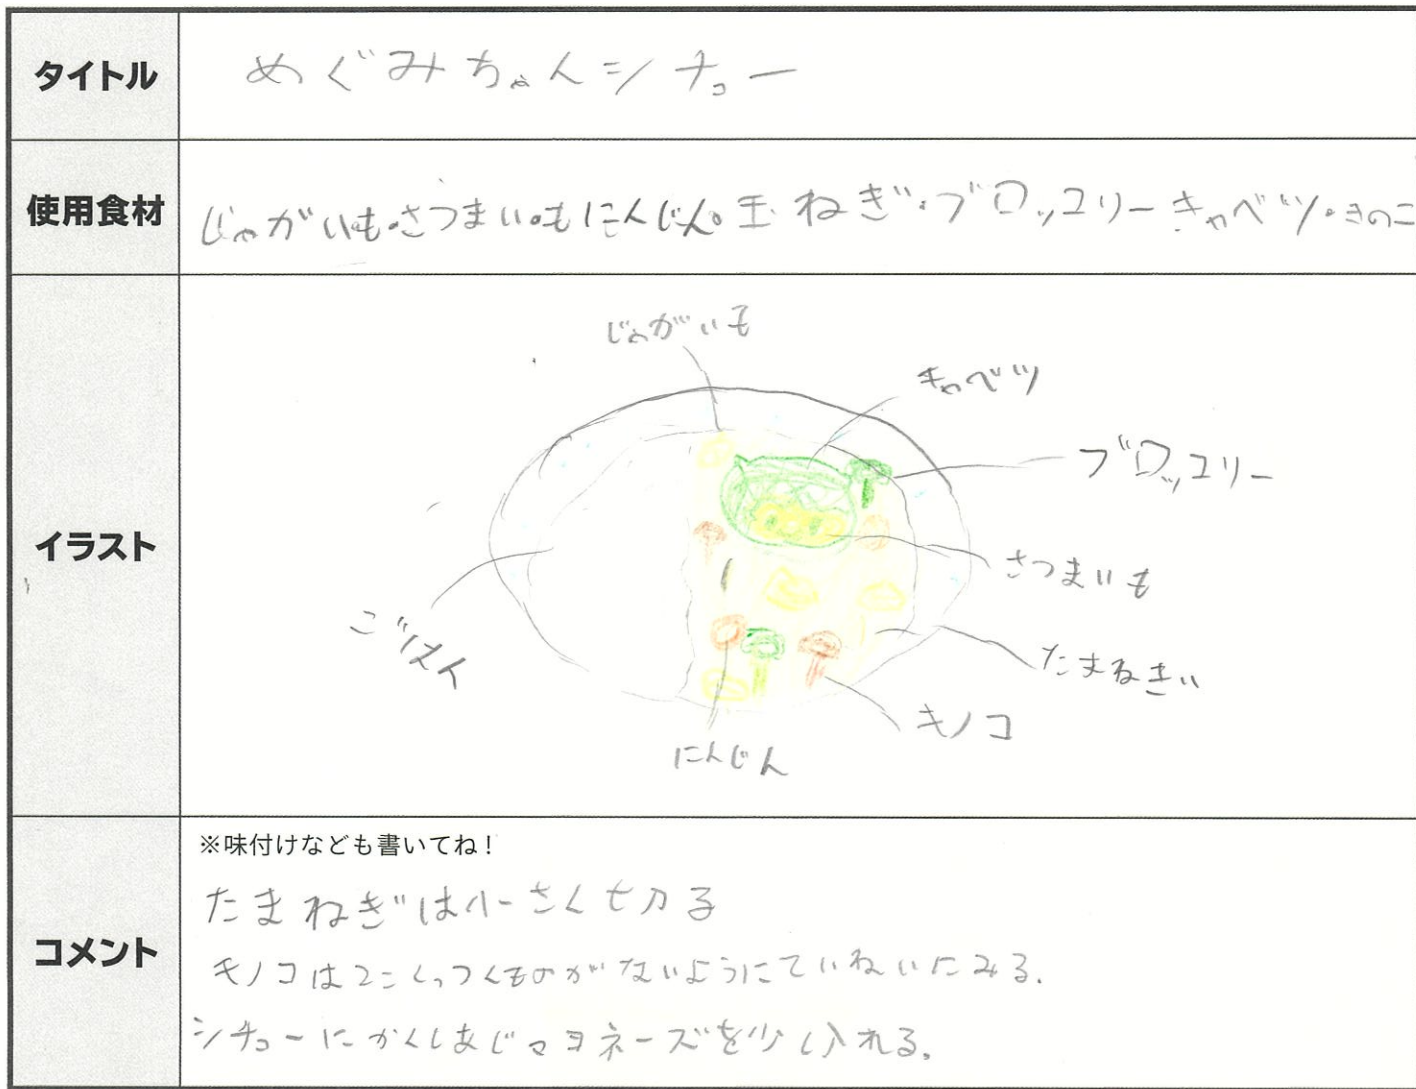 タイトル
めぐみちゃんシチュー
使用食材
じゃがいも・さつまいも・にんじん・玉ねぎ・ブロッコリーキャベツ・きのこ
イラスト
じゃがいも
キャベツ
ブロッコリー
さつまいも
たまねぎ
キノコ
にんじん
ごはん
コメント
※味付けなども書いてね！
たまねぎは小さく切る
キノコは2こくっつくものがないようにていねいにみる.
シチューにかくしあじマヨネーズを少し入れる。